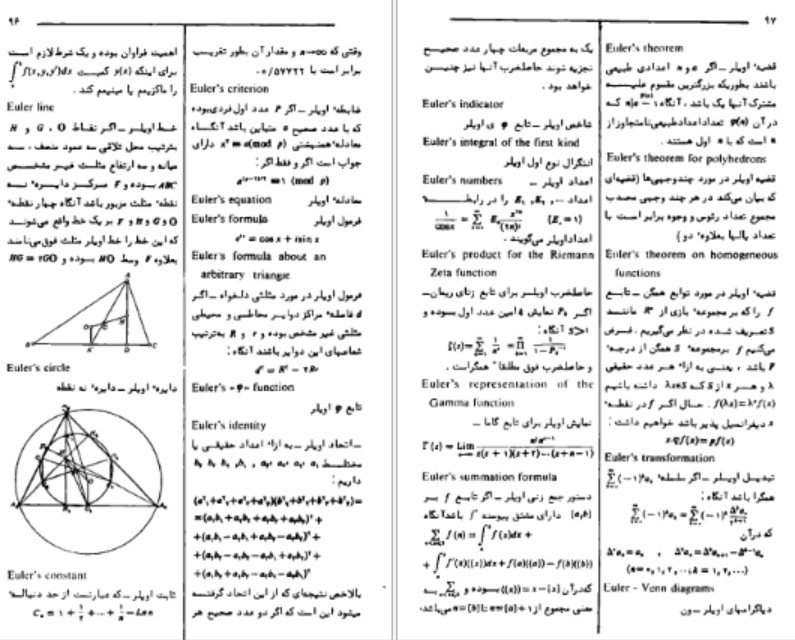 ۹۶
اهمیت فراوان بوده و یک شرط لازم است
برای اینکه y(x) کمیت ∫ f(x,y,y′)dx
را ماکزیمم یا مینیمم کند.
Euler line
خط اویلر ــ اگر نقاط O ، G و H
بترتیب محل تلاقی سه عمود منصف، سه
میانه و سه ارتفاع مثلث غیر مشخص
ABC بوده و F مرکز دایره نه
نقطه مثلث مزبور باشد آنگاه چهار نقطه
O و G و H و F بر یک خط واقع می‌شوند
که این خط را خط اویلر مثلث فوق می‌نامند
بعلاوه F وسط HO بوده و HG = ۲GO
A
B K D C
Euler's circle
دایره اویلر ــ دایره نه نقطه
Euler's constant
ثابت اویلر ــ که عبارتست از حد دنباله
Cₙ = ۱ + ۱/۲ + ... + ۱/n − Ln n
وقتی که n→∞ و مقدار آن بطور تقریب
برابر است با ۰/۵۷۷۲۲
Euler's criterion
ضابطه اویلر ــ اگر P عدد اول فردی بوده
که با عدد صحیح a متباین باشد آنگاه
معادله همنهشتی x² ≡ a(mod p) دارای
جواب است اگر و فقط اگر:
a^(p−۱)/۲ ≡ ۱ (mod p)
Euler's equation معادله اویلر
Euler's formula فرمول اویلر
e^ix = cos x + i sin x
Euler's formula about an
arbitrary triangle
فرمول اویلر در مورد مثلثی دلخواه ــ اگر
d فاصله مراکز دوایر محاطی و محیطی
مثلثی غیر مشخص بوده و r و R بترتیب
شعاعهای این دوایر باشند آنگاه:
d² = R² − ۲Rr
Euler's «φ» function
تابع φ اویلر
Euler's identity
ــ اتحاد اویلر ــ به ازاء اعداد حقیقی یا
مختلط
داریم:
بالاخص نتیجه‌ای که از این اتحاد گرفته
میشود این است که اگر دو عدد صحیح هر
۹۷
یک به مجموع مربعات چهار عدد صحیح
تجزیه شوند حاصلضرب آنها نیز چنین
خواهد بود.
Euler's indicator
شاخص اویلر ــ تابع φ ی اویلر
Euler's integral of the first kind
انتگرال نوع اول اویلر
Euler's numbers اعداد اویلر ــ
اعداد را در رابطه
(E₀ = ۱)
اعداد اویلر می‌گویند.
Euler's product for the Riemann
Zeta function
حاصلضرب اویلر برای تابع زتای ریمان ــ
اگر Pₖ نمایش kامین عدد اول بوده و
S>۱ آنگاه:
و حاصلضرب فوق مطلقاً همگراست.
Euler's representation of the
Gamma function
نمایش اویلر برای تابع گاما ــ
Euler's summation formula
دستور جمع زنی اویلر ــ اگر تابع f بر
[a,b] دارای مشتق پیوسته f′ باشد آنگاه
که در آن ((x)) = x − [x] بوده و Σ به
معنی مجموع از n=[a]+۱ تا n=[b] می‌باشد.
Euler's theorem
قضیه اویلر ــ اگر a و n اعدادی طبیعی
باشند بطوریکه بزرگترین مقسوم علیه
مشترک آنها یک باشد، آنگاه که
در آن φ(n) تعداد اعداد طبیعی نامتجاوز از
n است که با n اول هستند.
Euler's theorem for polyhedrons
قضیه اویلر در مورد چندوجهیها (قضیه‌ای
که بیان می‌کند در هر چند وجهی محدب
مجموع تعداد رئوس و وجوه برابر است با
تعداد یالها بعلاوه دو)
Euler's theorem on homogeneous
functions
قضیه اویلر در مورد توابع همگن ــ تابع
f را که بر مجموعه بازی از Rⁿ مانند
S تعریف شده در نظر می‌گیریم. فرض
می‌کنیم f بر مجموعه S همگن از درجه
P باشد، یعنی به ازاء هر عدد حقیقی
λ و هر x از S که λx∈S داشته باشیم
f(λx) = λᵖf(x). حال اگر f در نقطه
x دیفرانسیل پذیر باشد خواهیم داشت:
x·∇f(x) = pf(x)
Euler's transformation
تبدیل اویلر ــ اگر سلسله
همگرا باشد آنگاه:
که در آن
(n=۰,۱,۲,...;k=۱,۲,...)
Euler - Venn diagrams
دیاگرامهای اویلر ــ ون